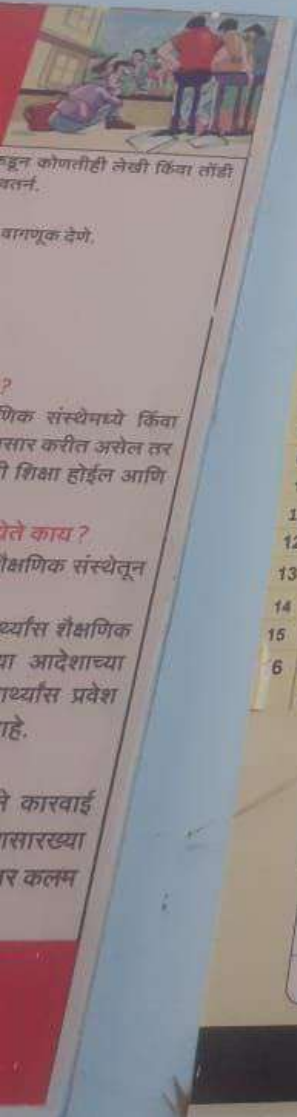 कडून कोणतीही लेखी किंवा तोंडी
वर्तन.
वागणूक देणे.
?
णिक संस्थेमध्ये किंवा
सार करीत असेल तर
ी शिक्षा होईल आणि
येते काय ?
शैक्षणिक संस्थेतून
र्थ्यास शैक्षणिक
या आदेशाच्या
ार्थ्यास प्रवेश
आहे.
ने कारवाई
ासारख्या
र कलम
12
13
14
15
6